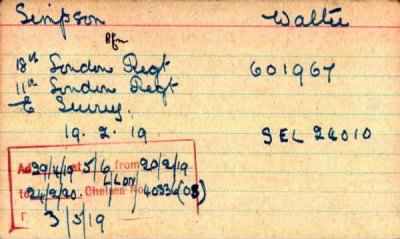 Simpson Walter
Rfn
18th London Regt 601967
11th London Regt
E Surrey.
19. 2. 19 SEL 26010
29/4/19 at 5/6 from 20/2/19
to 24/2/20. Chelsea No. 40336(08)
3/5/19